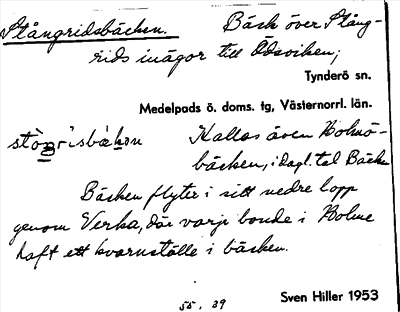 Stångridsbäcken. Bäck över Stång-
rids inägor till Ödsviken;
Tynderö sn.
Medelpads ö. doms. tg, Västernorrl. län.
Kallas även Holmö-
bäcken, i dagl. tal Bäcken
Bäcken flyter i sitt nedre lopp
genom Verka, där varje bonde i Holme
haft ett kvarnställe i bäcken.
55. 29
Sven Hiller 1953